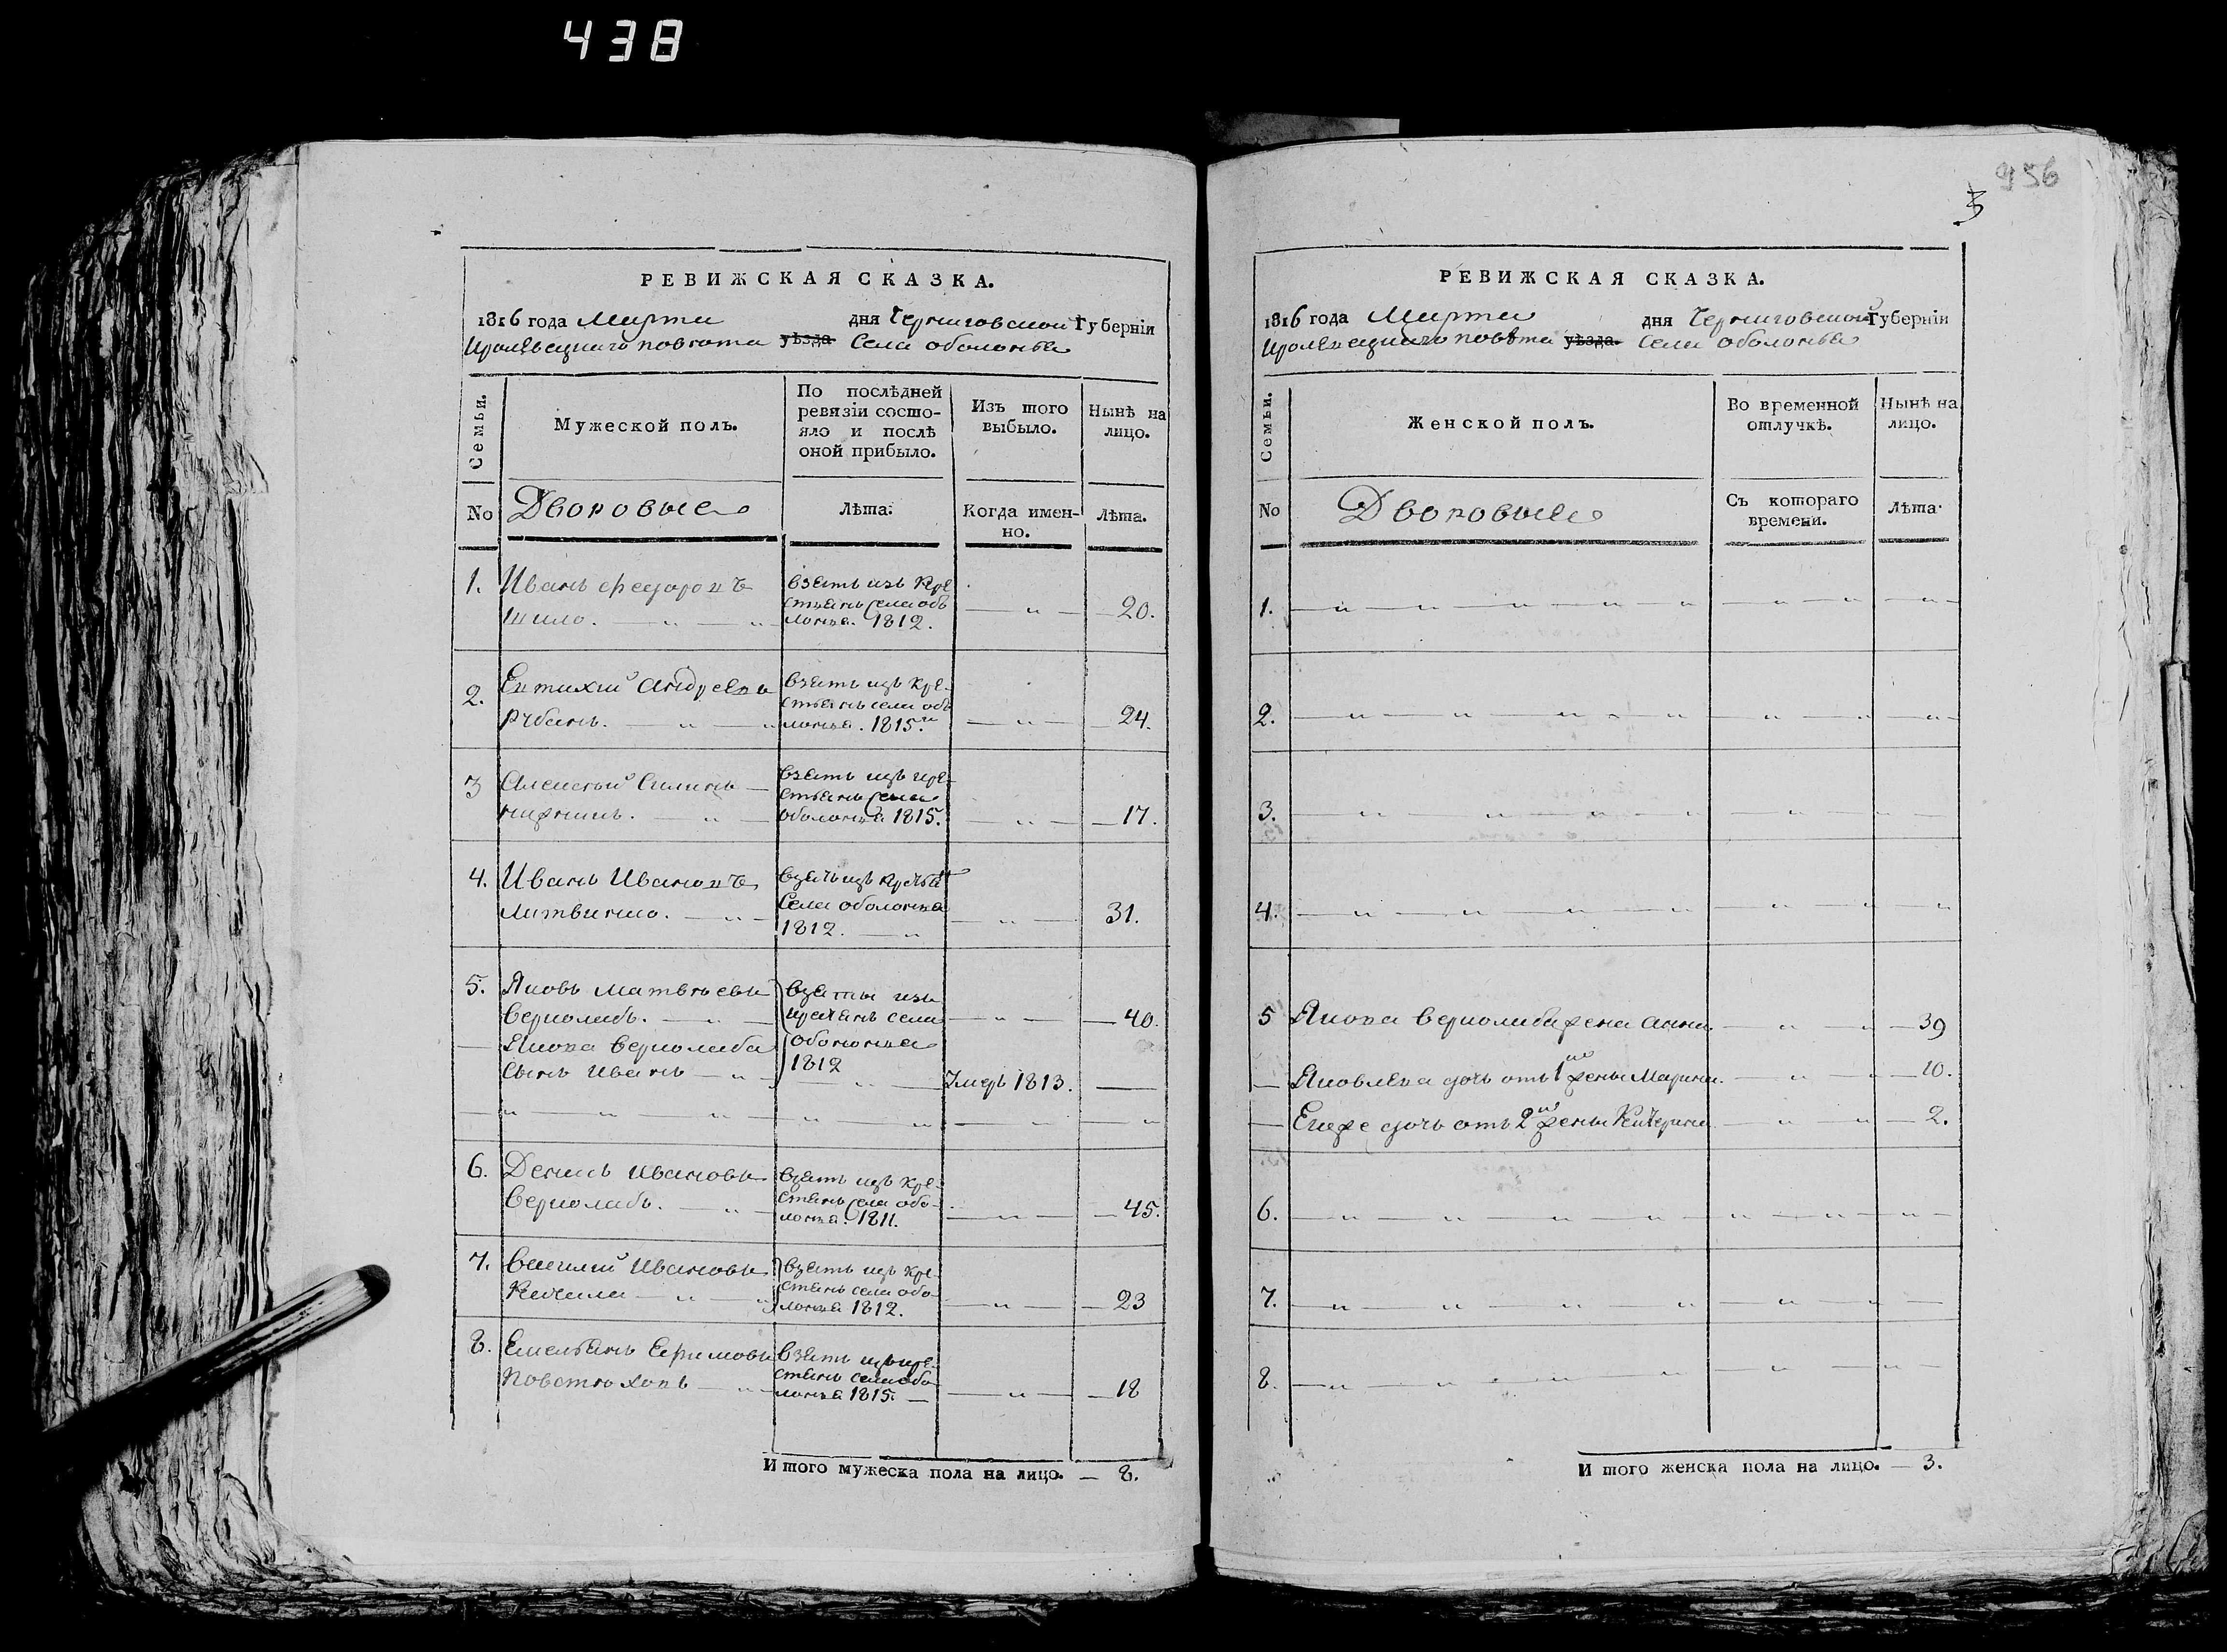 438
РЕВИЖСКАЯ СКАЗКА.
1816 года Марта дня Черниговской Губернїи
Кролевецкаго повѣта уѣзда Села оболонья
Семьи.
Мужеской полъ.
По послѣдней
ревизїи состо-
яло и послѣ
оной прибыло.
Изъ того
выбыло.
Нынѣ на
лицо.
No
Дворовые
Лѣта.
Когда имен-
но.
Лѣта.
1. Иванъ Федоровъ
Шило. взятъ изъ кре
стьянъ села обо
лонья. 1812. 20.
2. Евтихий Андреевъ
Рубанъ. взятъ изъ кре-
стьянъ села обо
лонья. 1815. 24.
3 Алексей
взятъ изъ кре-
стьянъ села
оболонья 1815. 17.
4. Иванъ Ивановъ
Литвинко. взятъ изъ
Села оболонья
1812. 31.
5. Яковъ Матвѣевъ
Верколабъ. взяты изъ
села
оболонья
1812 40.
Якова Верколаба
сынъ Иванъ Умеръ 1813.
6. Денисъ Ивановъ
Верколабъ. взятъ изъ кре-
стьянъ села обо-
лонья. 1811. 45.
7. Василий Ивановъ
взятъ изъ кре-
стьянъ села обо-
лонья 1812. 23
8. Емельянъ Ефимовъ
взятъ изъ кре-
стьянъ села обо
лонья 1815. 18
Итого мужеска пола на лицо. 8.
956
РЕВИЖСКАЯ СКАЗКА.
1816 года Марта дня Черниговской Губернїи
Кролевецкаго повѣта уѣзда. Села оболонья
Семьи.
Женской полъ.
Во временной
отлучкѣ.
Нынѣ на
лицо.
No
Дворовые
Съ котораго
времени.
Лѣта.
1.
2.
3.
4.
5 Якова Верколаба жена Анна 39
Яковлева дочь отъ 1й жены Марина. 10.
Егоже дочь отъ 2й жены Катерина 2.
6.
7.
8.
Итого женска пола на лицо. 3.